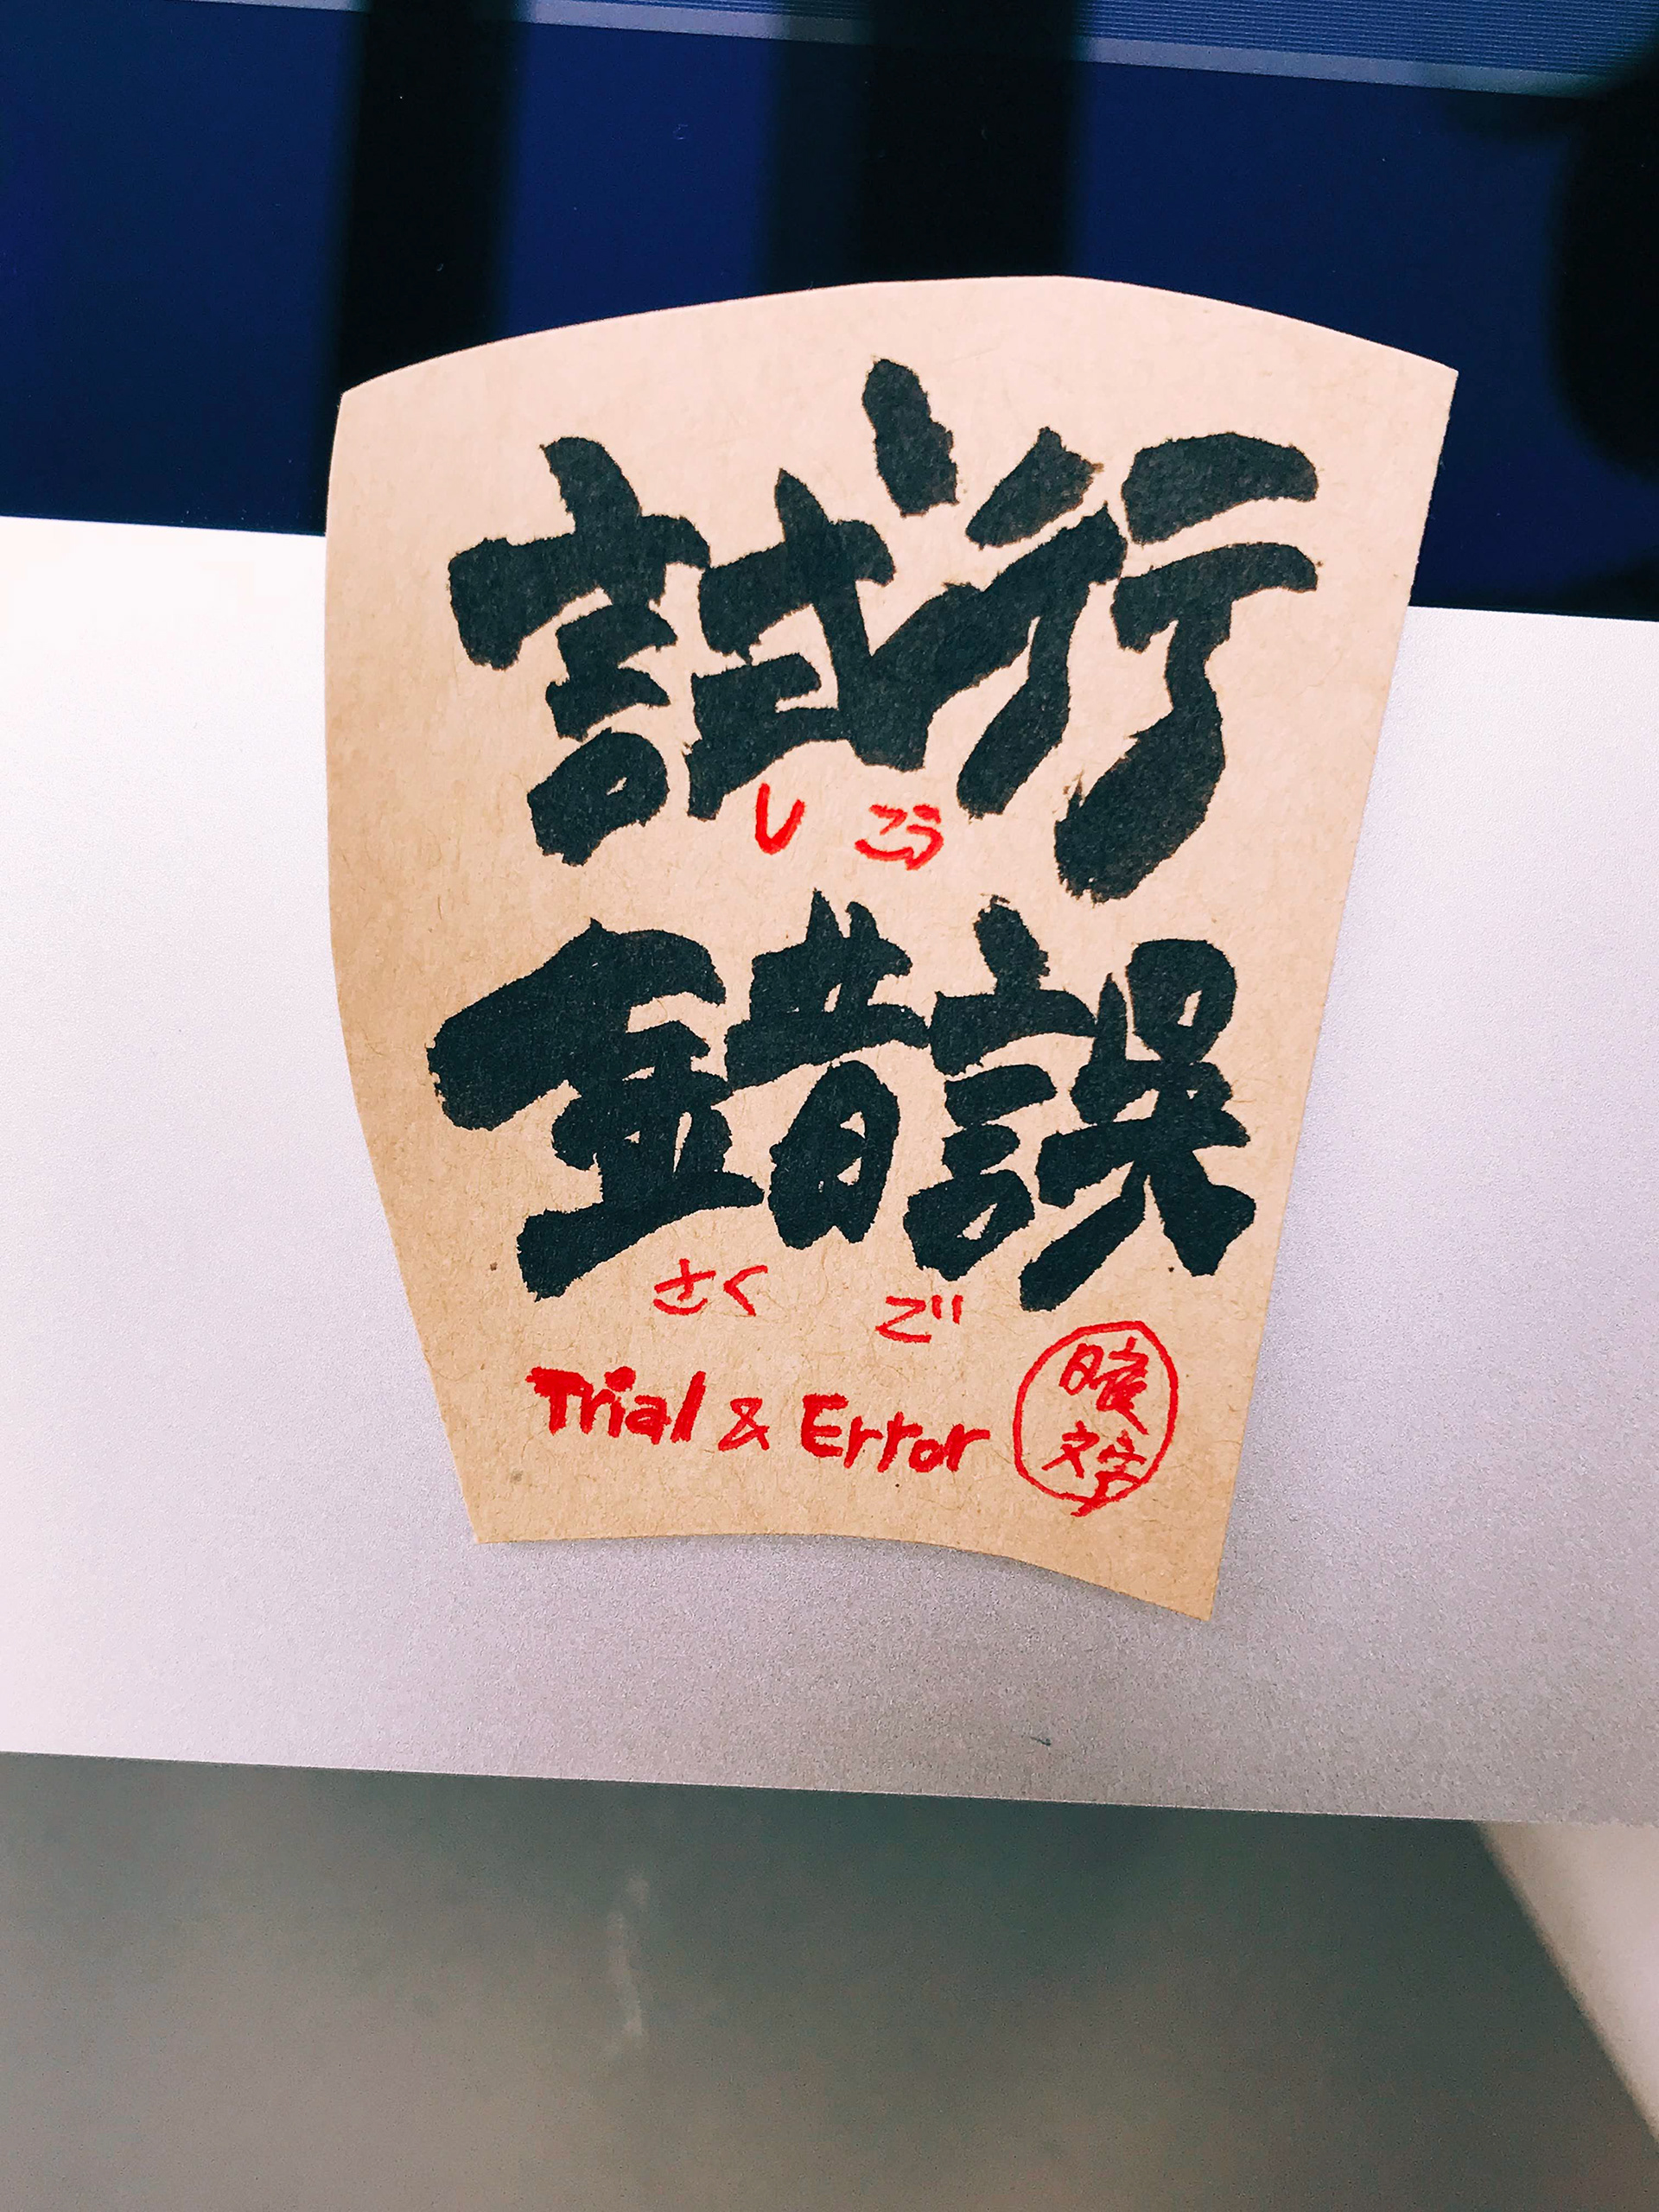 試行
しこう
錯誤
さくご
Trial & Error
文字